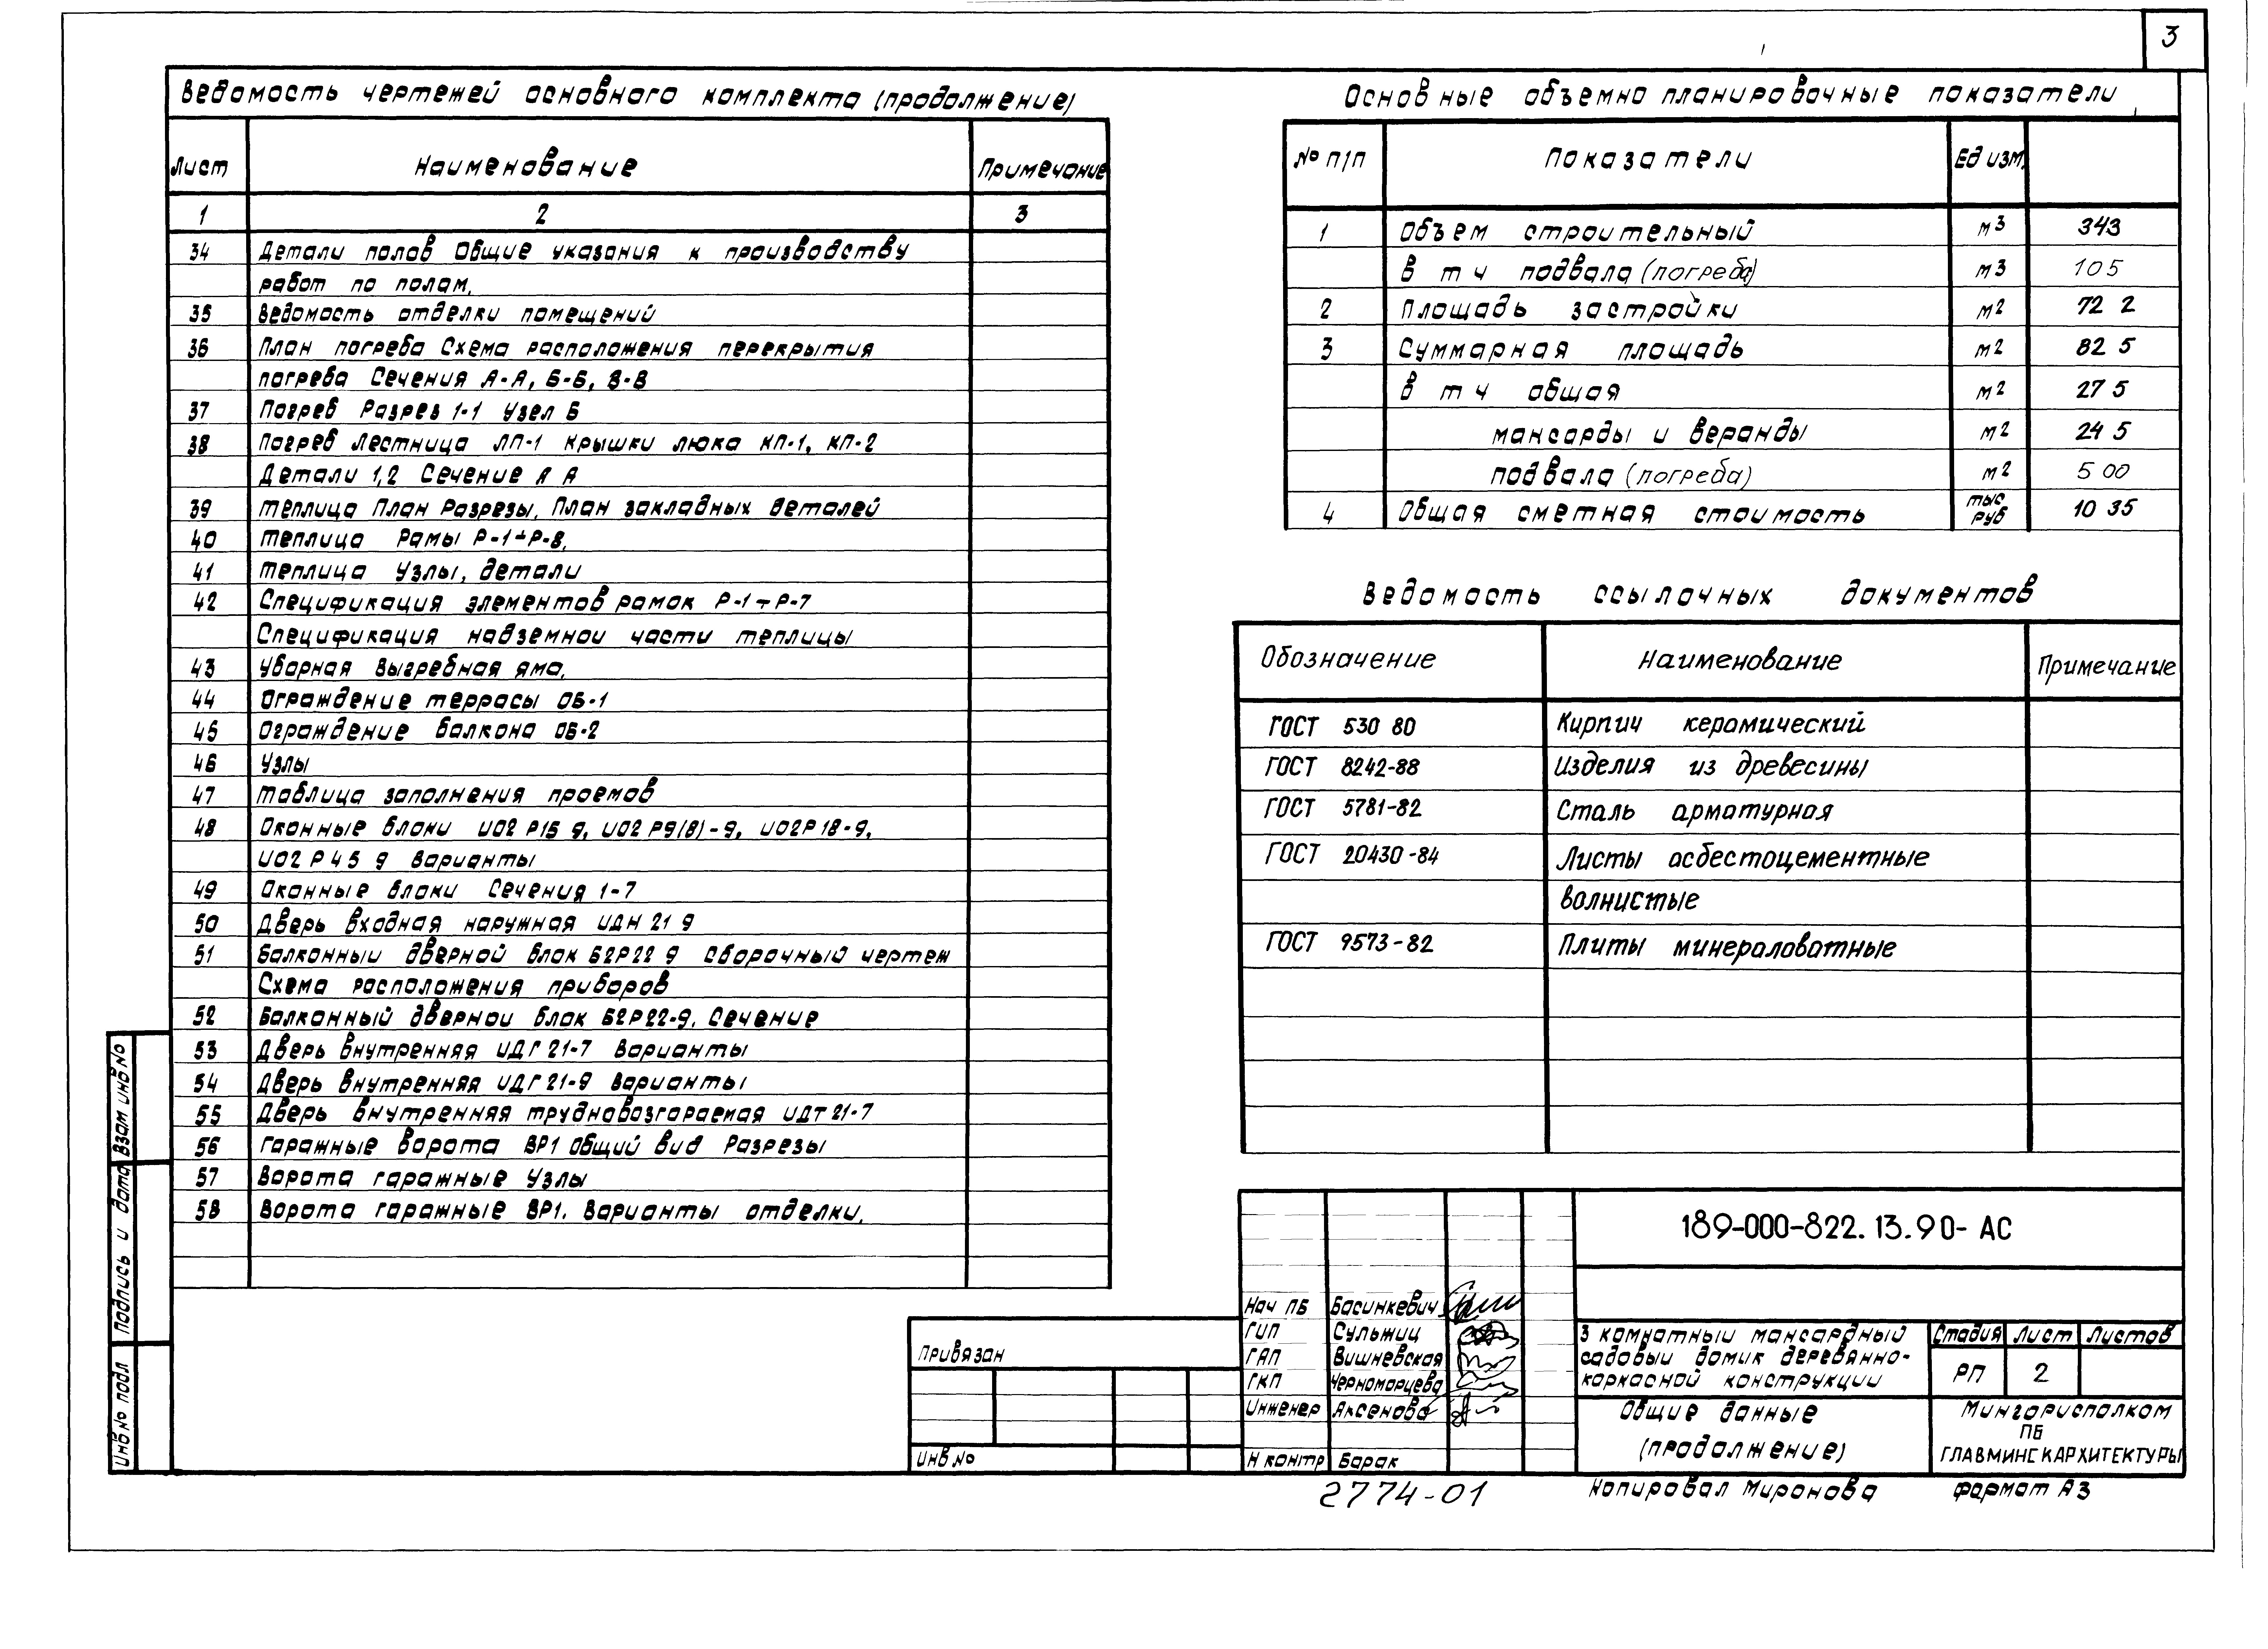 3
Ведомость чертежей основного комплекта (продолжение)
Лист Наименование Примечание
1 2 3
34 Детали полов Общие указания к производству
работ по полам.
35 Ведомость отделки помещений
36 План погреба Схема расположения перекрытия
погреба Сечения А-А, Б-Б, В-В
37 Погреб Разрез 1-1 Узел Б
38 Погреб Лестница ЛП-1 Крышки люка КП-1, КП-2
Детали 1,2 Сечение А А
39 Теплица План Разрезы. План закладных деталей
40 Теплица Рамы Р-1÷Р-8.
41 Теплица Узлы, детали
42 Спецификация элементов рамок Р-1÷Р-7
Спецификация надземнои части теплицы
43 Уборная выгребная яма.
44 Ограждение террасы ОБ-1
45 Ограждение балкона ОБ-2
46 Узлы
47 Таблица заполнения проемов
48 Оконные блоки ИО2 Р15 9, ИО2 Р9(8)-9, ИО2Р18-9,
ИО2 Р45 9 варианты
49 Оконные блоки Сечения 1-7
50 Дверь входная наружная ИДН 21 9
51 Балконныи дверной блок Б2Р22 9 Сборочный чертеж
Схема расположения приборов
52 Балконный двернои блок Б2Р22-9. Сечение
53 Дверь внутренняя ИДГ 21-7 Варианты
54 Дверь внутренняя ИДГ 21-9 Варианты
55 Дверь внутренняя трудновозгораемая ИДТ 21-7
56 Гаражные ворота ВР1 Общий вид Разрезы
57 Ворота гаражные Узлы
58 Ворота гаражные ВР1. Варианты отделки.
Основные объемно планировочные показатели
№ п/п Показатели Ед изм.
1 Объем строительный м3 343
в т ч подвала (погреба) м3 105
2 Площадь застройки м2 72 2
3 Суммарная площадь м2 82 5
в т ч общая м2 27 5
мансарды и веранды м2 24 5
подвала (погреба) м2 5 00
4 Общая сметная стоимость тыс руб 10 35
Ведомость ссылочных документов
Обозначение Наименование Примечание
ГОСТ 530 80 Кирпич керамический
ГОСТ 8242-88 Изделия из древесины
ГОСТ 5781-82 Сталь арматурная
ГОСТ 20430-84 Листы асбестоцементные
волнистые
ГОСТ 9573-82 Плиты минераловатные
189-000-822.13.90-АС
Нач ПБ Басинкевич
ГИП Сульжиц
ГАП Вишневская
ГКП Черноморцева
Инженер Аксенова
Н контр Барак
3 комнатныи мансардный
садовыи домик деревянно-
каркасной конструкции
Стадия Лист Листов
РП 2
Общие данные
(продолжение)
Мингорисполком
ПБ
ГЛАВМИНСКАРХИТЕКТУРЫ
Привязан
Инв №
Взам инв №
Подпись и дата
Инв № подл
2774-01
Копировал Миронова
Формат А3